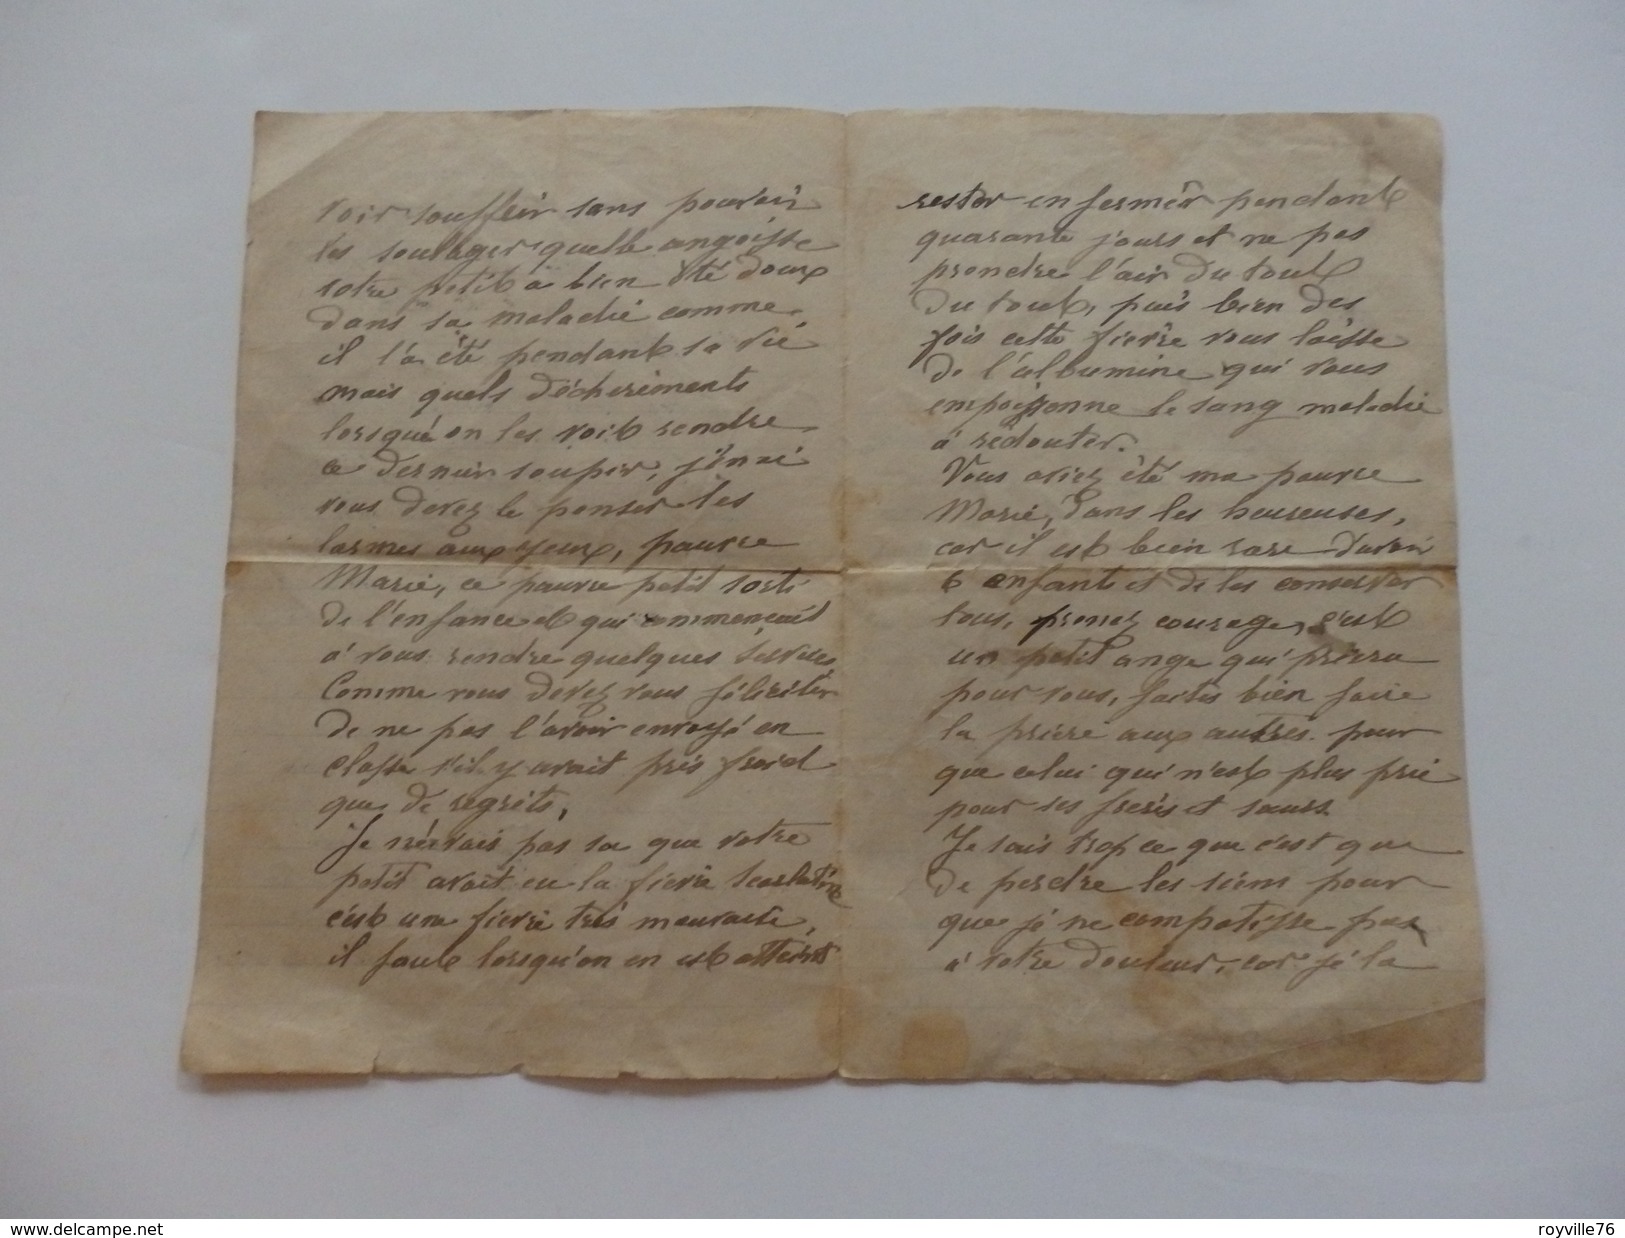 voir souffrir sans pouvoir
les soulager quelle angoisse
votre petit a bien été doux
dans sa maladie comme
il l'a été pendant sa vie
mais quels déchirements
lorsque on les voit rendre
ce dernier soupir, j'en ai
vous devez le penser les
larmes aux yeux, pauvre
Marie, ce pauvre petit sorti
de l'enfance et qui commençait
à vous rendre quelques services
Comme vous devez vous féliciter
de ne pas l'avoir envoyé en
classe s'il y avait pris froid
que de regrets,
Je n'avais pas su que votre
petit avait eu la fievre scarlatine
c'est une fievre très mauvaise,
il faut lorsqu'on en est atteint
rester enfermér pendant
quarante jours et ne pas
prendre l'air du tout
du tout, puis bien des
fois cette fievre vous laisse
de l'albumine qui vous
empoissonne le sang maladie
à redouter.
Vous aviez été ma pauvre
Marie, dans les heureuses,
car il est bien rare d'avoir
6 enfants et de les conserver
tous, prenez courage, c'est
un petit ange qui priera
pour vous, faites bien faire
la prière aux autres pour
que celui qui n'est plus prie
pour ses freres et sœurs
Je sais trop ce que c'est que
de perdre les siens pour
que je ne compatisse pas
à votre douleur, car je la
delcampe.net
royville76